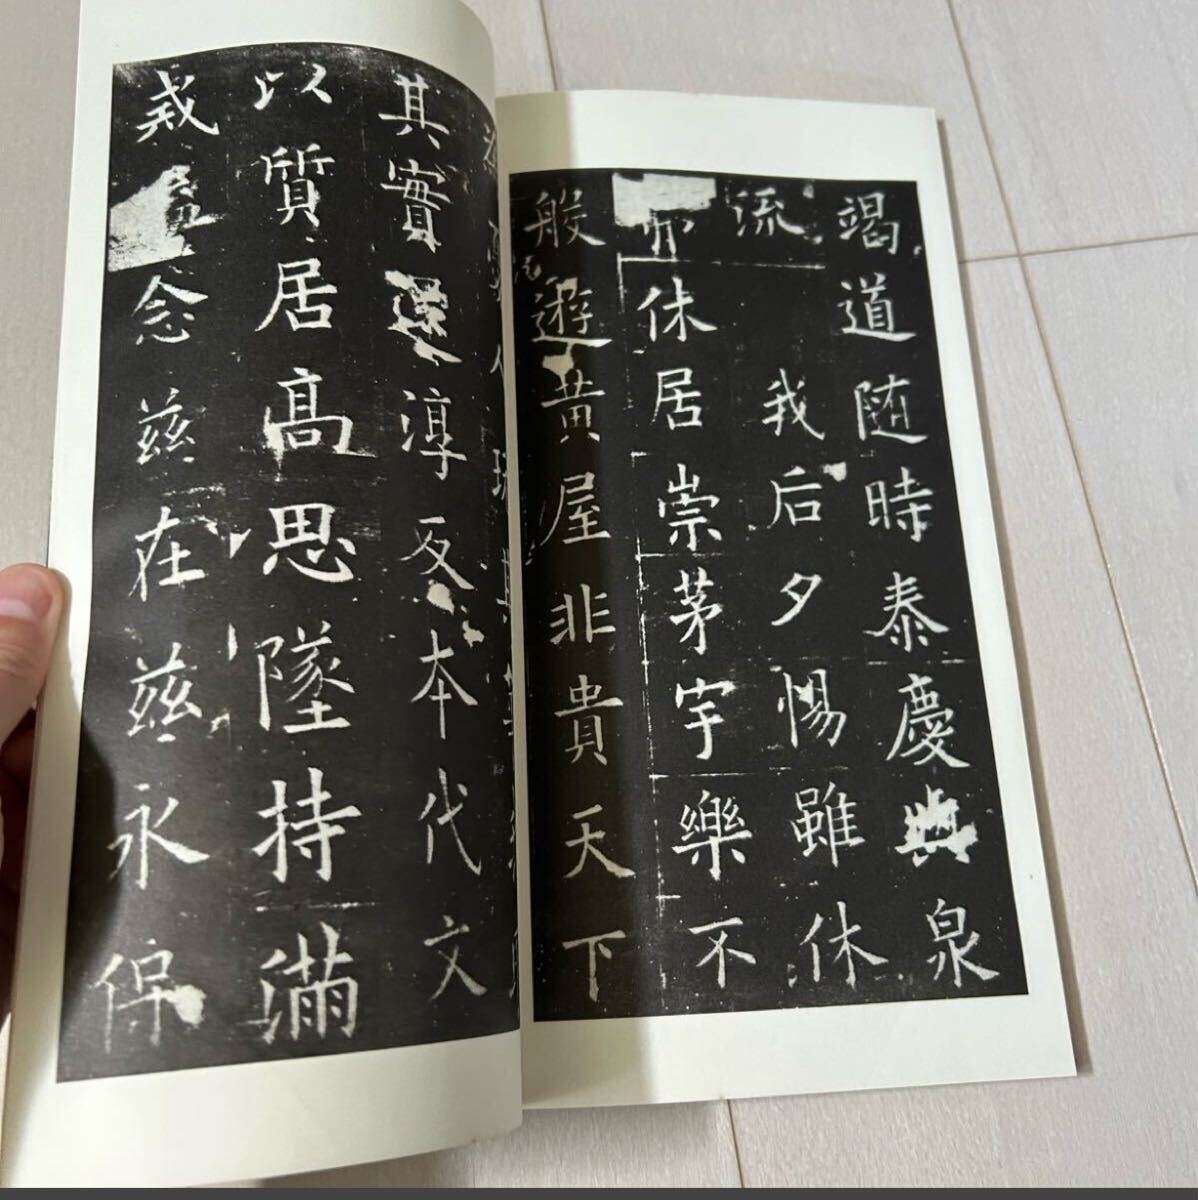 竭道随時泰慶與泉
流我后夕惕雖休
休居崇茅宇樂不
般遊黃屋非貴天下
其實還淳反本代文
以質居高思墜持滿
戒溢念茲在茲永保